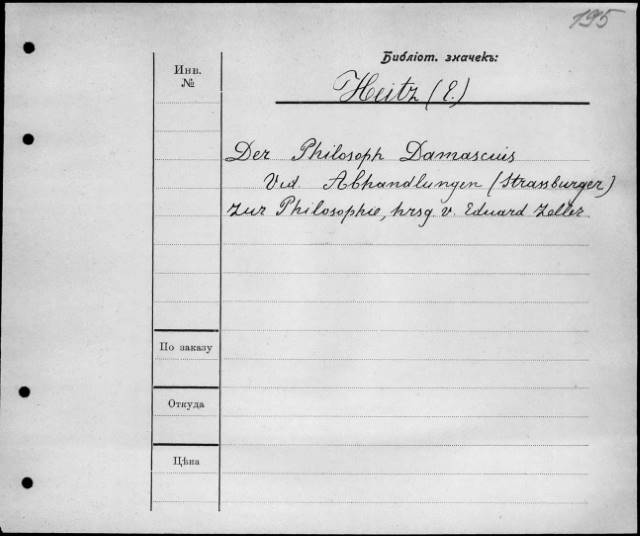 195
Библіот. значекъ:
Инв.
№
Heitz (E.)
Der Philosoph Damascius
Vid. Abhandlungen (Strassburger)
zur Philosophie, hrsg. v. Eduard Zeller.
По заказу
Откуда
Цѣна